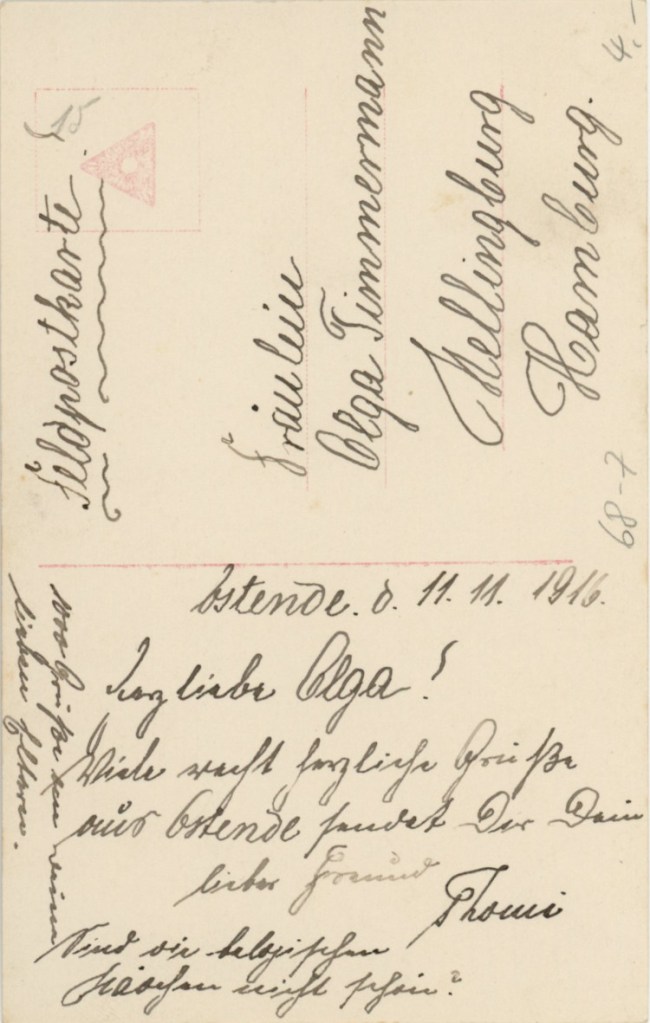 Feldpostkarte.
Fräulein
Olga Timmermann
Mellingburg
Hamburg.
Ostende. d. 11.11.1916.
Herzliebe Olga!
Viele recht herzliche Grüße
aus Ostende sendet Dir Dein
lieber Freund
Thomi
Sind die belgischen
Mädchen nicht schön?
1000 Grüße an deine
lieben Eltern.
15
4.-
68-7